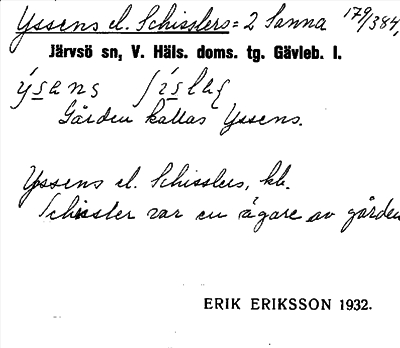 Yssens el. Schisslers = 2 Sanna 179/384,
Järvsö sn, V. Häls. doms. tg. Gävleb. l.
Gården kallas Yssens.
Yssens el. Schisslers, kb.
Schissler var en ägare av gården
ERIK ERIKSSON 1932.